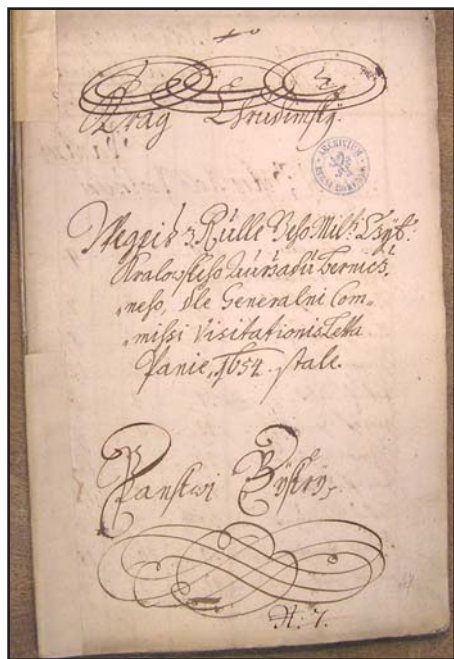 Krag Chrudimsky.
ARCHIVUM REGNI BOHEMIAE
Wegpis z Rulle Geho Milti: Czys:
Kralowskeho Auržadu bernicz,
„neho, dle Generalni Com„
„missi Visitationis Letta
Panie, 1654. stale.
Panstwi Bystry,
N: 7.